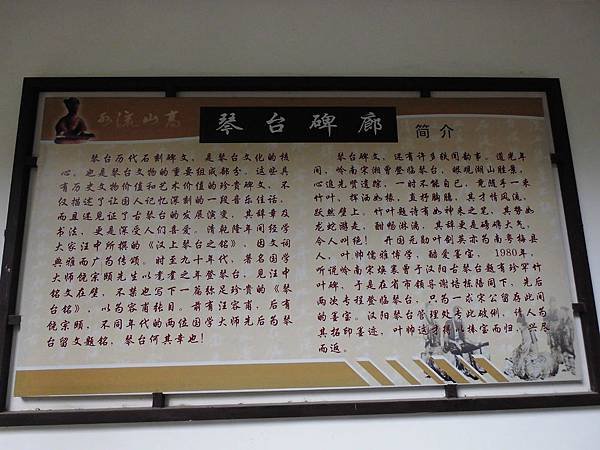 水流山高
琴台碑廊
简介
琴台历代石刻碑文，是琴台文化的核
心，也是琴台文物的重要组成部分。这些具
有历史文物价值和艺术价值的珍贵碑文，不
仅描述了让国人记忆深刻的一段音乐佳话，
而且还见证了古琴台的发展演变，其辞章及
书法，更是深受人们喜爱。清乾隆年间经学
大家汪中所撰的《汉上琴台之铭》，因文词
典雅而广为传颂。时至九十年代，著名国学
大师饶宗颐先生以耄耋之年登琴台，见汪中
铭文在壁，不禁也写下一篇弥足珍贵的《琴
台铭》，以为容甫张目。前有汪容甫，后有
饶宗颐，不同年代的两位国学大师先后为琴
台留文题铭，琴台何其幸也！
琴台碑文，还有许多轶闻韵事。道光年
间，岭南宋湘曾登临琴台，眼观湖山胜景，
心追先贤遗踪，一时不能自已，竟随手一束
竹叶，挥洒如椽，直抒胸臆，其才情风流，
跃然壁上。竹叶题诗有如神来之笔，其势如
龙蛇游走，酣畅淋漓，其辞更是磅礴大气，
令人叫绝！开国元勋叶剑英亦为南粤梅县
人，叶帅儒雅博学，酷爱墨宝，1980年，
听说岭南宋焕襄曾于汉阳古琴台题有珍罕竹
叶碑，于是在省市领导谢培栋陪同下，先后
两次专程登临琴台，只为一求宋公留存此间
的墨宝。汉阳琴台管理处专此破例，请人为
其拓印墨迹，叶帅这才得以捧宝而归，兴尽
而返。